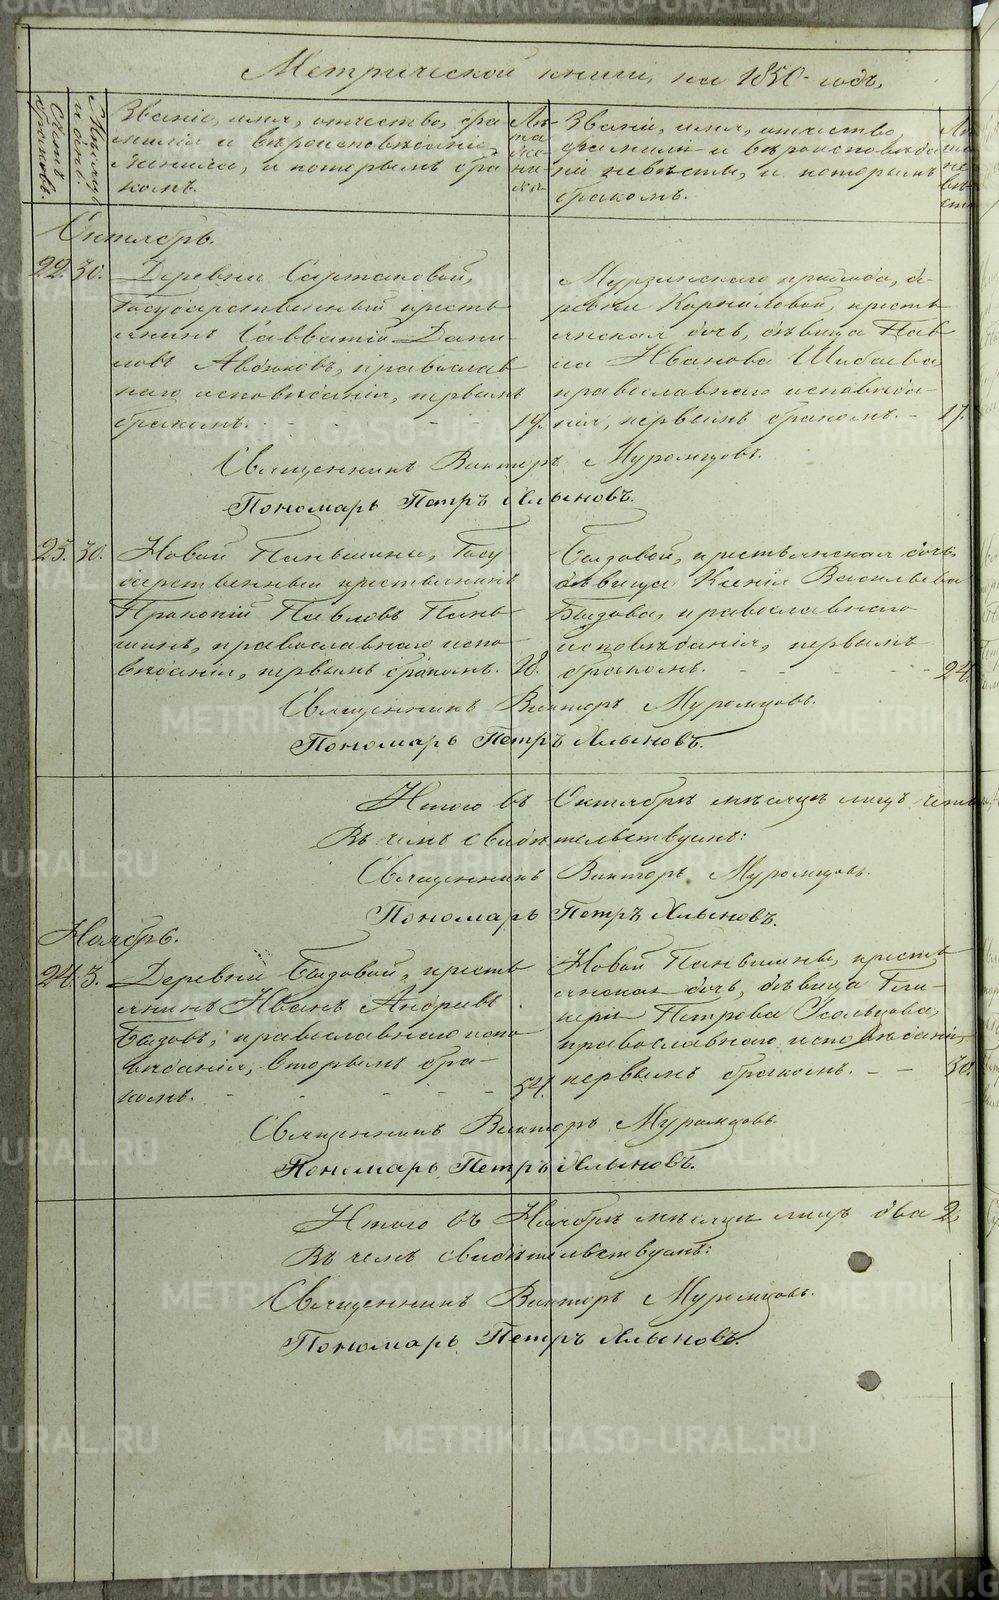 Метрической книги, на 1850 годъ,
Счетъ браковъ.
Мѣсяцъ и день.
Званіе, имя, отчество, фа
милія и вѣроисповѣданіе
жениха, и которымъ бра
комъ.
Лѣ
та
же
ни
ха
Званіе, имя, отчество,
фамилія и вѣроисповѣда
ніе невѣсты, и которымъ
бракомъ.
Лѣ
та
не
вѣ
сты
Октябрь.
22. 30. Деревни
Государственный кресть
янинъ Савватій Дани
ловъ Авдюковъ, православ
наго исповѣданія, первымъ
бракомъ. 19.
Мурзинскаго прихода, де
ревни Корниловой, кресть
янская дочь, дѣвица Пав
ла Иванова Шибаева,
православнаго исповѣда-
нія, первымъ бракомъ. - 17.
Священникъ Викторъ Муромцовъ.
Пономарь Петръ Хлыновъ.
23. 30. Новой Паньшины, Госу
дарственный крестьянинъ
Прокопій Павловъ Пань
шинъ, православнаго испо
вѣданія, первымъ бракомъ. 28.
Быдовой, крестьянская дочь,
дѣвица Ксенія Васильева
Быдова, православнаго
исповѣданія, первымъ
бракомъ. 24.
Священникъ Викторъ Муромцовъ.
Пономарь Петръ Хлыновъ.
Итого въ Октябрѣ мѣсяцѣ лицъ
Въ чемъ свидѣтельствуемъ:
Священникъ Викторъ Муромцовъ.
Пономарь Петръ Хлыновъ.
Ноябрь.
24. 3. Деревни Быдовой, кресть
янинъ Иванъ Андреевъ
Быдовъ, православнаго испо
вѣданія, вторымъ бра-
комъ. 54.
Новой Паньшины, кресть
янская дочь, дѣвица Гли
керія Петрова Усольцова,
православнаго исповѣданія,
первымъ бракомъ. - - 30.
Священникъ Викторъ Муромцовъ
Пономарь Петръ Хлыновъ.
Итого въ Ноябрѣ мѣсяцѣ лицъ два 2.
Въ чемъ свидѣтельствуемъ:
Священникъ Викторъ Муромцовъ.
Пономарь Петръ Хлыновъ.
METRIKI.GASO-URAL.RU